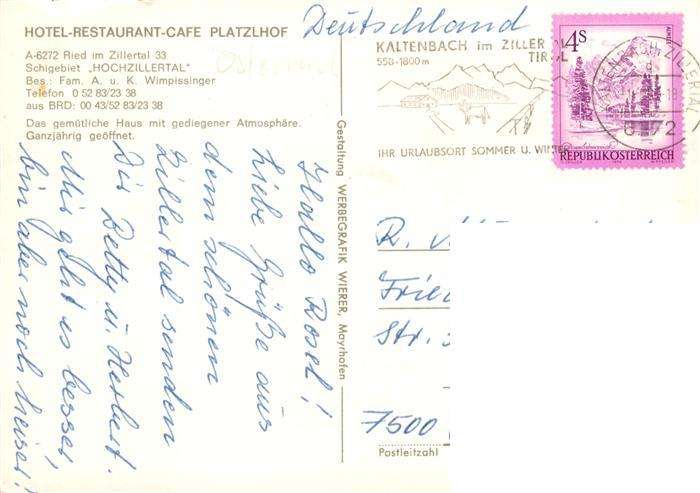 HOTEL-RESTAURANT-CAFE PLATZLHOF
A-6272 Ried im Zillertal 33
Schigebiet „HOCHZILLERTAL"
Bes.: Fam. A. u. K. Wimpissinger
Telefon 0 52 83/23 38
aus BRD: 00 43/52 83/23 38
Das gemütliche Haus mit gediegener Atmosphäre.
Ganzjährig geöffnet.
Österreich
Hallo Rosel!
Liebe Grüße aus
dem schönen
Zillertal senden
Dir Betty u. Herbert.
Mir geht es besser,
bin aber noch heiser!
Gestaltung WERBEGRAFIK WIERER, Mayrhofen
Deutschland
KALTENBACH im ZILLER
TIROL
550-1800m
IHR URLAUBSORT SOMMER U. WINTER
4S
REPUBLIK ÖSTERREICH
KALTENBACH, ZILLERTAL
6272
R.
Frie
Str.
7500
Postleitzahl